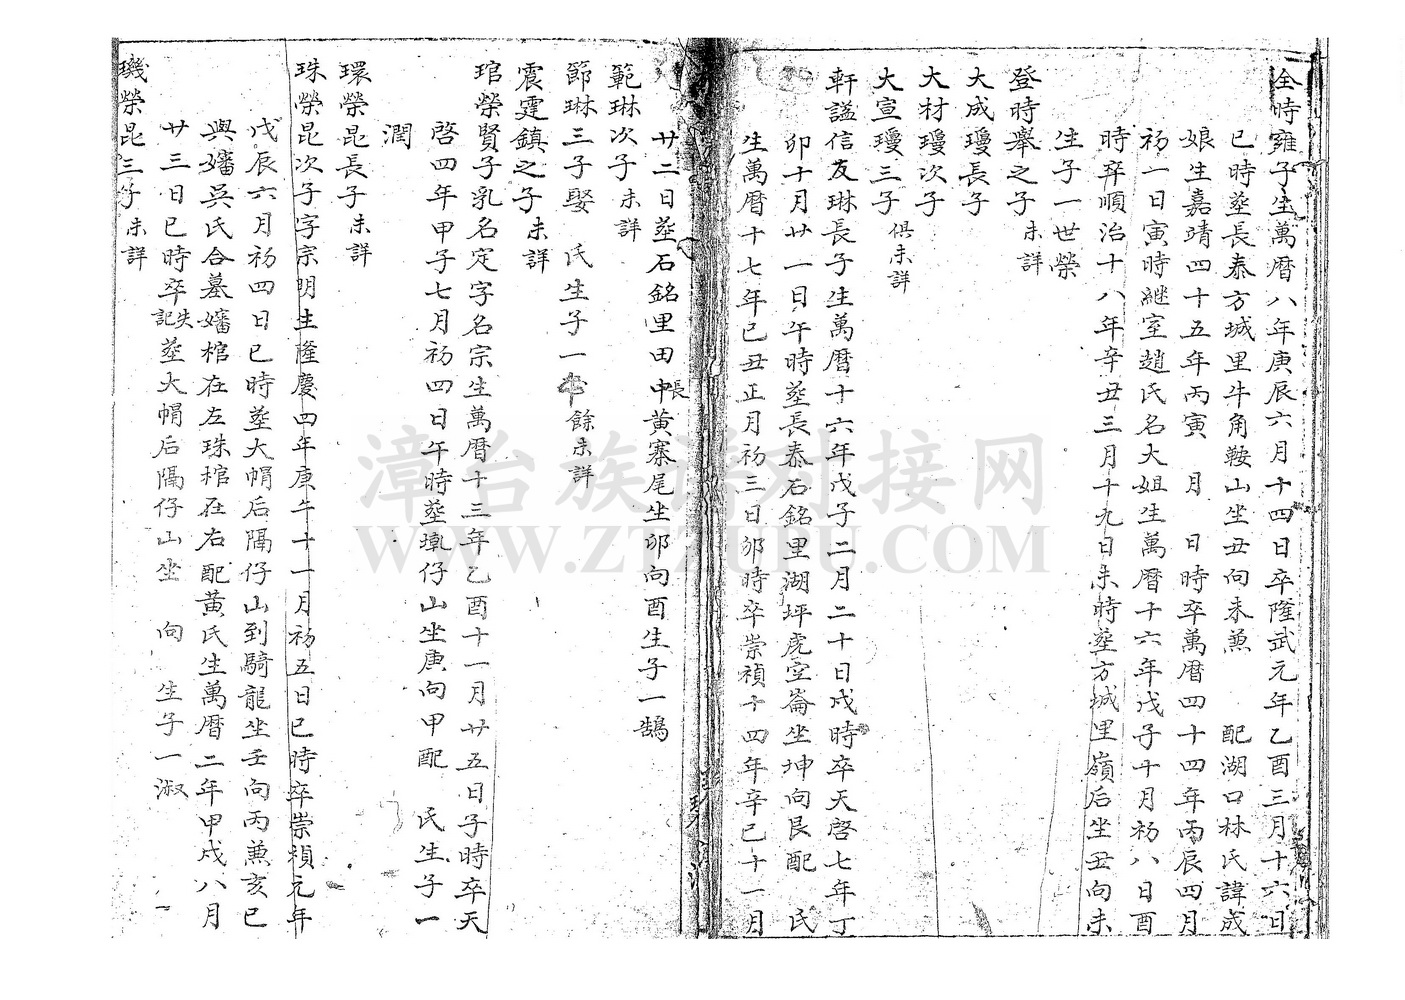 全時雍子生萬曆八年庚辰六月十四日卒隆武元年乙酉三月十六日
巳時塟長泰方城里牛角鞍山坐丑向未兼 配湖口林氏諱成
娘生嘉靖四十五年丙寅 月 日時卒萬曆四十四年丙辰四月
初一日寅時継室趙氏名大姐生萬曆十六年戊子十月初八日酉
時卒順治十八年辛丑三月十九日未時塟方城里嶺后坐丑向未
生子一世榮
登時舉之子未詳
大成瓊長子
大材瓊次子
大宣瓊三子俱未詳
軒謚信友琳長子生萬曆十六年戊子二月二十日戌時卒天啓七年丁
卯十月廿一日午時塟長泰石銘里湖坪虎空崙坐坤向艮配 民
生萬曆十七年己丑正月初三日卯時卒崇禎十四年辛巳十一月
廿二日塟石銘里田中長黃寨尾坐卯向酉生子一鵠
範琳次子未詳
節琳三子娶 氏生子一 餘未詳
震霆鎮之子未詳
琯榮賢子乳名定字名宗生萬曆十三年乙酉十一月廿五日子時卒天
啓四年甲子七月初四日午時塟墘仔山坐庚向甲配 氏生子一
潤
環榮昆長子未詳
珠榮昆次子字宗明生隆慶四年庚午十一月初五日巳時卒崇禎元年
戊辰六月初四日巳時塟大帽后隔仔山到騎龍坐壬向丙兼亥巳
與嬸吳氏合墓嬸棺在左珠棺在右配黃氏生萬曆二年甲戌八月
廿三日巳時卒失記塟大帽后隔仔山坐 向 生子一淑
璣榮昆三子未詳
漳台族谱对接网
WWW.ZTZUPU.COM